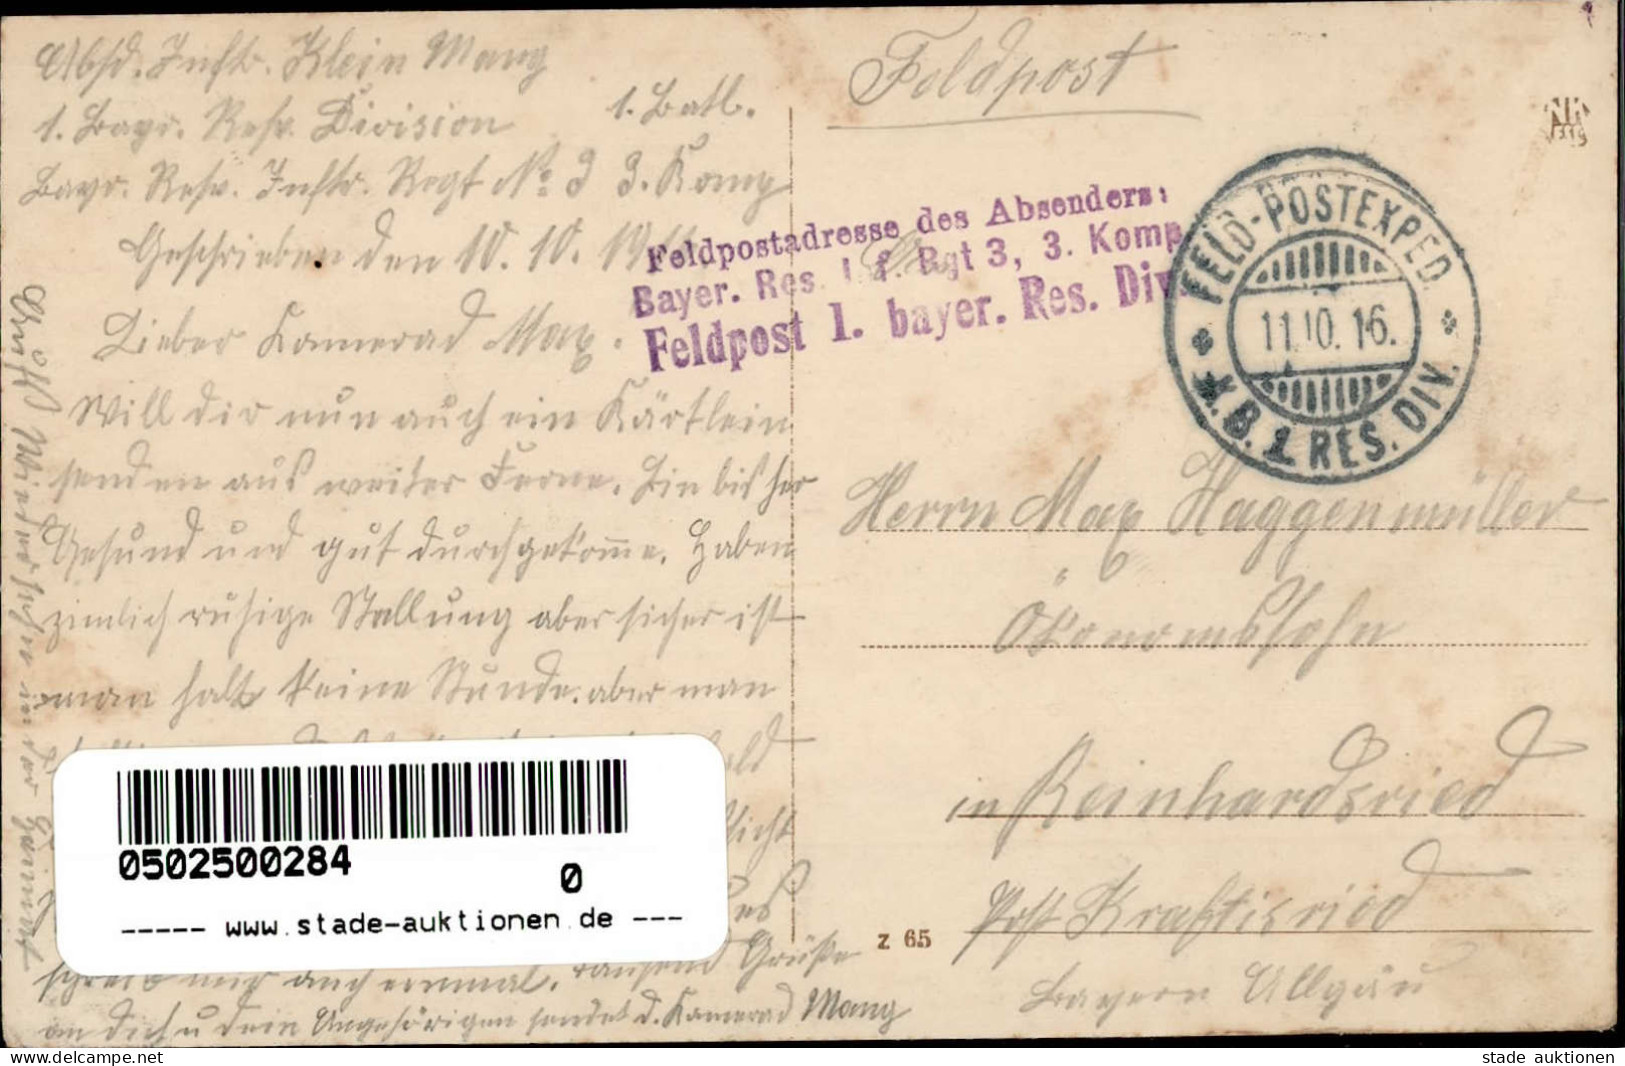 Absd. Inftr. Klein Mang
1. Bayr. Resv. Division 1. Batl.
Bayr. Resv. Inftr. Regt No 3 3. Komp
Geschrieben den 10. 10. 19
Lieber Kamerad Max.
Will dir nun auch ein Kärtlein
senden aus weiter Ferne. Bin bis her
Gesund und gut durchgekom̅e. Haben
zimlich ruhige Stellung aber sicher ist
man halt keine Stunde. aber man
ald
es
schreib mir auch einmal. Tausend Grüße
an dich u dein Angehörigen sendet d. Kamerad Mang
Auf Wiedersehen in der Heimat
Feldpost
Feldpostadresse des Absenders:
Bayer. Res. I. f. Rgt 3, 3. Komp
Feldpost 1. bayer. Res. Div.
FELD-POSTEXPED
11.10.16.
K.B. 1 RES. DIV.
Herrn Max Haggenmüller
Ökonomsohn
in Reinhardsried
Post Kraftisried
Bayern Allgäu
Z 65
0502500284
0
----- www.stade-auktionen.de ---
www.stade-auktionen.de
stade auktionen